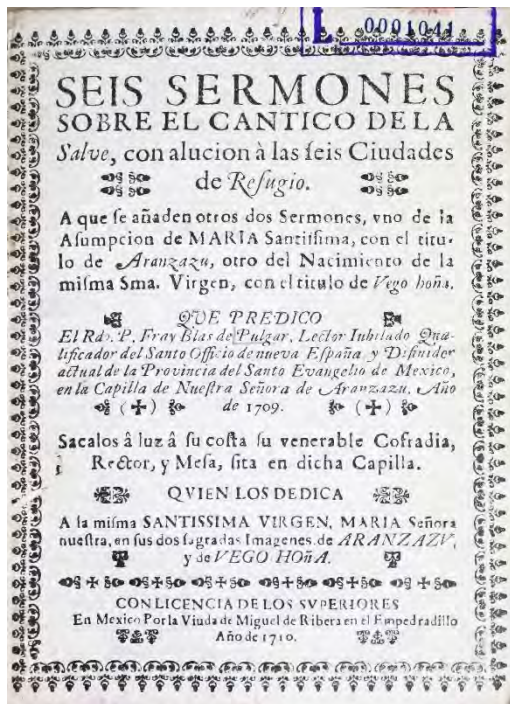 0001041
SEIS SERMONES
SOBRE EL CANTICO DE LA
Salve, con alucion à las ſeis Ciudades
de Refugio.
A que ſe añaden otros dos Sermones, vno de la
Aſumpcion de MARIA Santiſsima, con el titu-
lo de Aranzazu, otro del Nacimiento de la
miſma Sma. Virgen, con el titulo de Vego hoña.
QVE PREDICO
El Rdo. P. Fray Blas de Pulgar, Lector Iubilado Qua-
lificador del Santo Officio de nueva Eſpaña, y Difinider
actual de la Provincia del Santo Evangelio de Mexico,
en la Capilla de Nueſtra Señora de Aranzazu, Año
(✠) de 1709. (✠)
Sacalos â luz â ſu coſta ſu venerable Cofradia,
Rector, y Meſa, ſita en dicha Capilla.
QVIEN LOS DEDICA
A la miſma SANTISSIMA VIRGEN, MARIA Señora
nueſtra, en ſus dos ſagradas Imagenes de ARANZAZV,
y de VEGO HOñA.
CON LICENCIA DE LOS SVPERIORES
En Mexico Por la Viuda de Miguel de Ribera en el Empedradillo
Año de 1710.